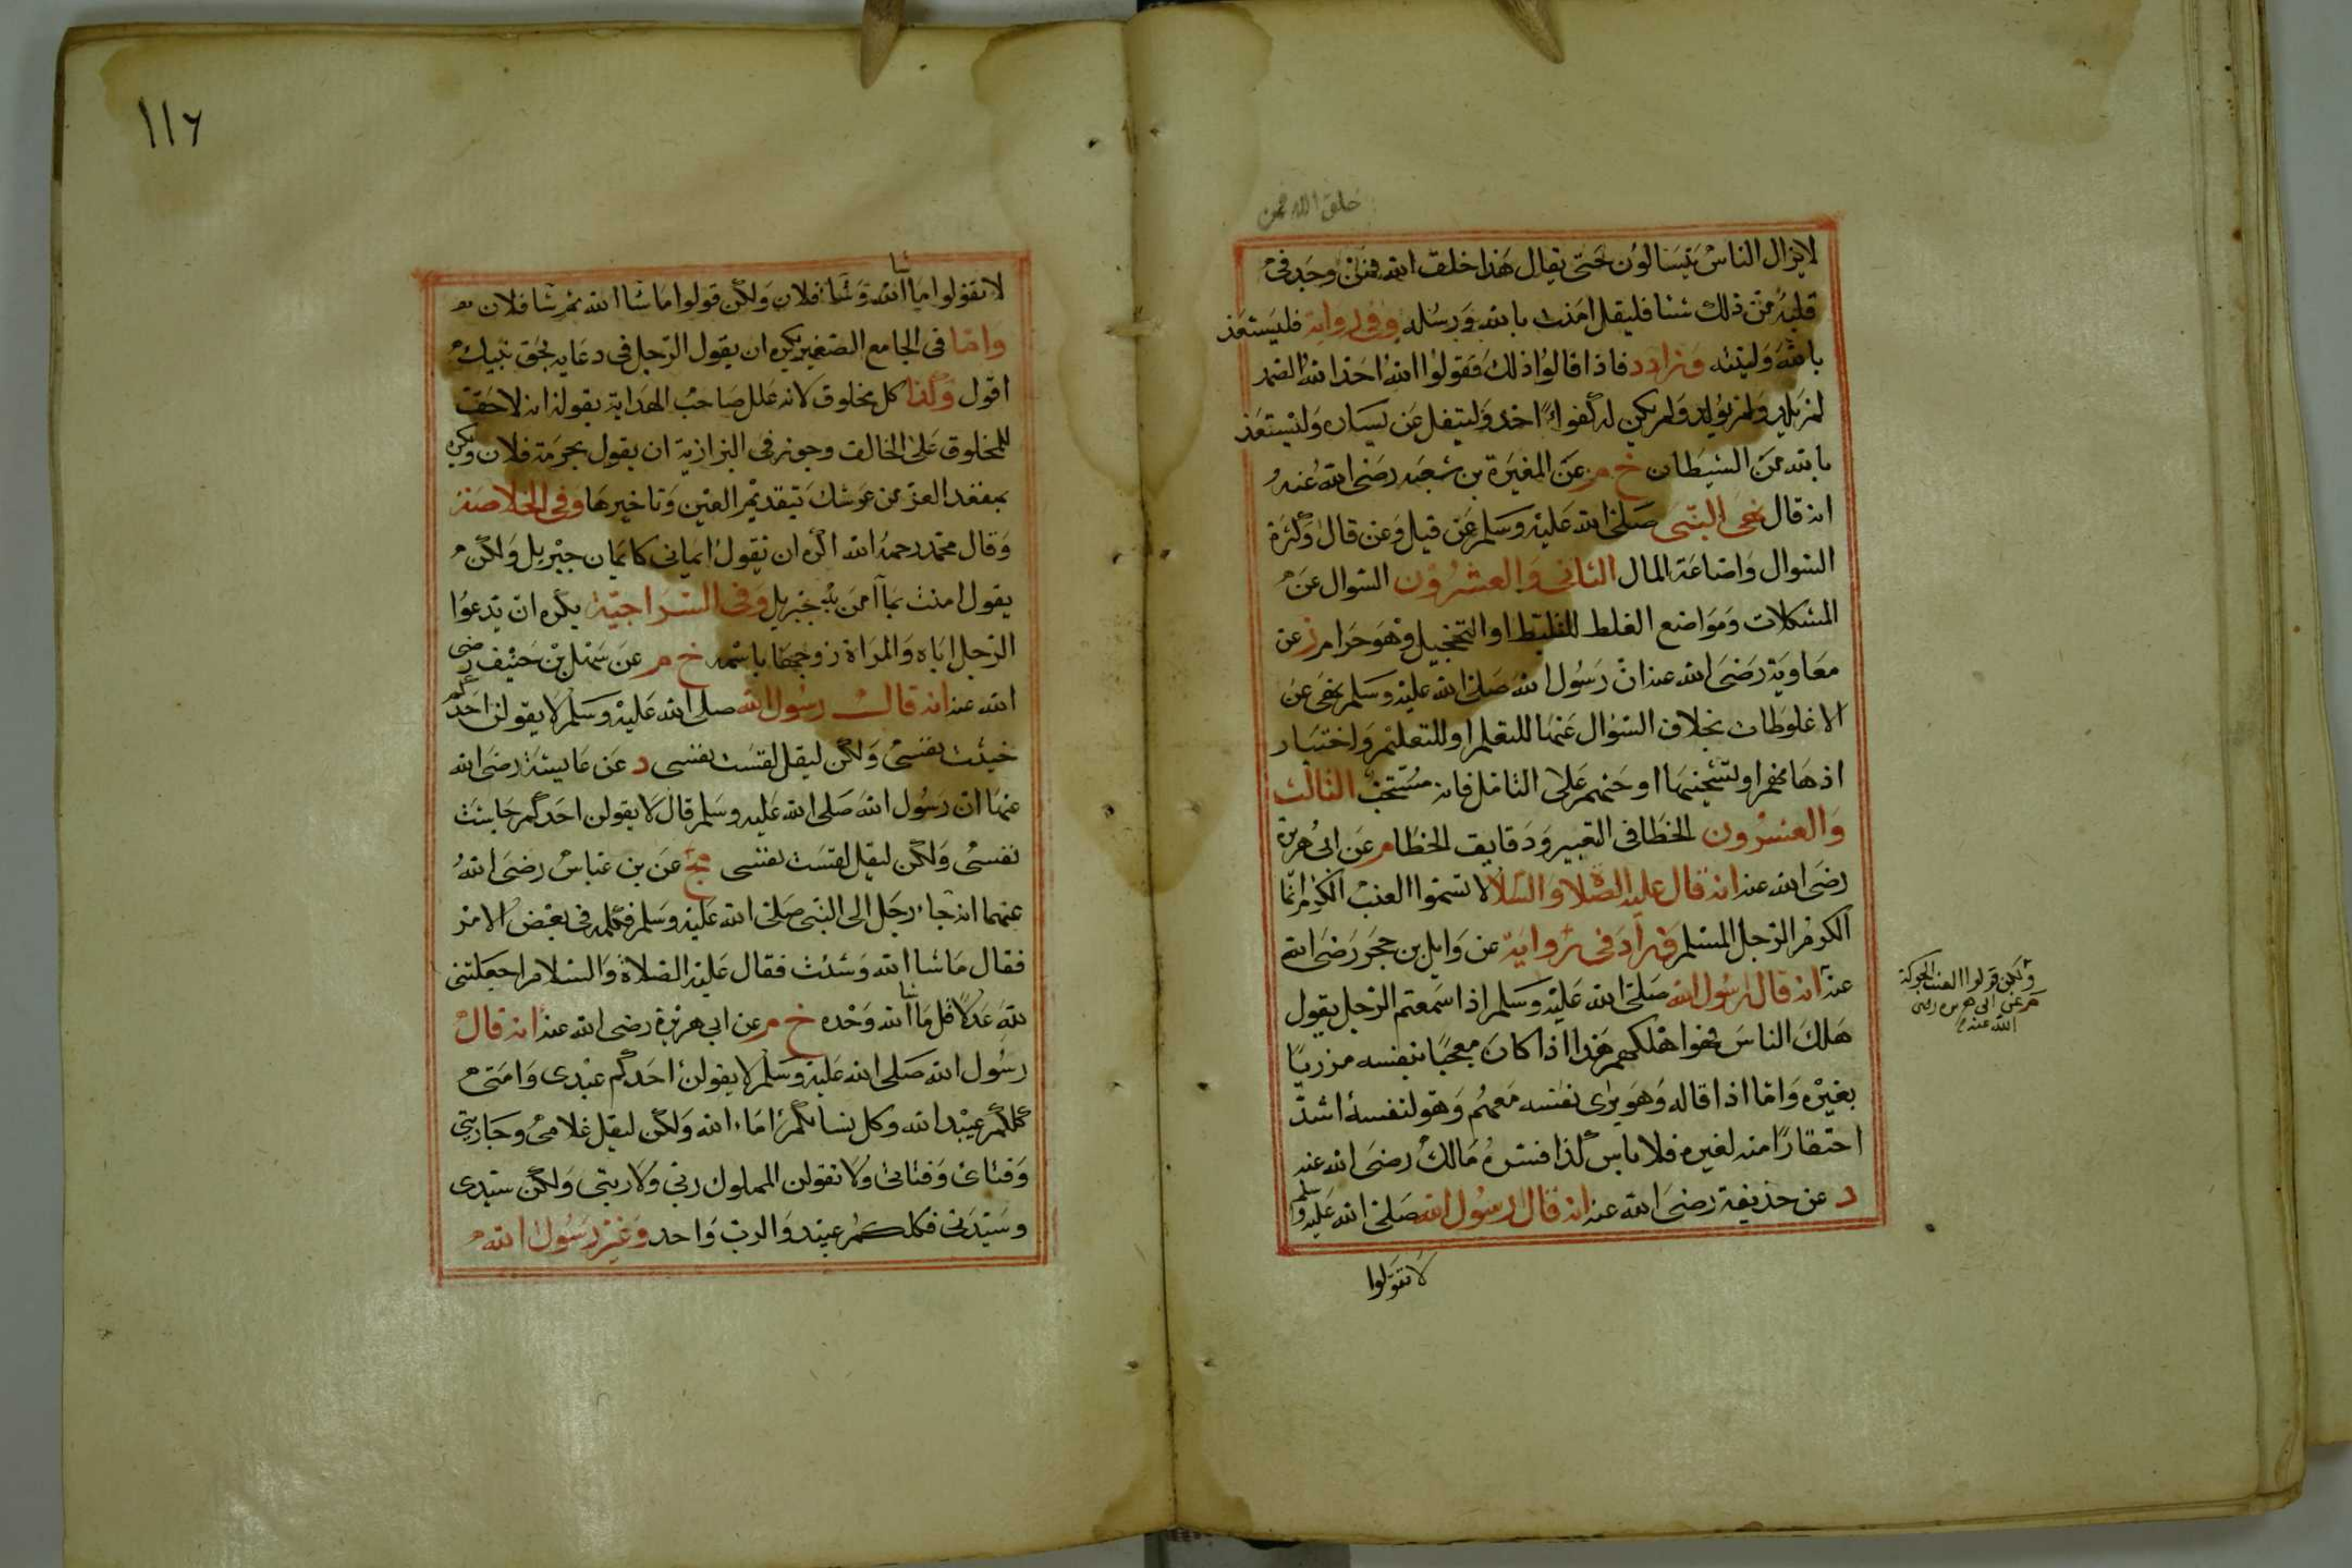 خلق الله فمن
لايزال الناس يتسالون حتى يقال هذا خلق الله فمن وجد في
قلبه من ذلك شئا فليقل امنت بالله ورسله وفي رواية فليستعذ
بالله ولينته وزاد د فاذا قالوا ذلك فقولوا الله احد الله الصمد
لم يلد ولم يولد ولم يكن له كفوا احد وليتفل عن يساره وليستعذ
بالله من الشيطان خ م عن المغيرة بن شعبه رضى الله عنه
انه قال نهى النبى صلى الله عليه وسلم عن قيل وعن قال وكثرة
السوال واضاعة المال الثانى والعشرون السوال عن
المشكلات ومواضع الغلط للتغليط او التخجيل وهو حرام د عن
معاوية رضى الله عنه ان رسول الله صلى الله عليه وسلم نهى عن
الاغلوطات بخلاف السؤال عنها للتعلم او للتعليم واختبار
اذهانهم او تشحيذها او حثهم على التامل فانه مستحب الثالث
والعشرون الخطا فى التعبير ودقايق الخطا م عن ابى هريرة
رضى الله عنه انه قال عليه الصلاة والسلام لا تسموا العنب الكرم انما
الكرم الرجل المسلم وزاد فى رواية عن وايل بن حجر رضى الله
ولكن قولوا العنب والحبلة
م عن ابى هريره رضى
الله عنه
عنه انه قال رسول الله صلى الله عليه وسلم اذا سمعتم الرجل يقول
هلك الناس فهو اهلكهم هذا اذا كان معجبا بنفسه مزريا
بغيره واما اذا قاله وهو يرى نفسه معهم وهو لنفسه اشد
احتقارا منه لغيره فلا باس كذا فسره مالك رضى الله عنه
د عن حذيفة رضى الله عنه انه قال رسول الله صلى الله عليه وسلم
لا تقولوا
١١٦
لا تقولوا ما شا الله وشا فلان ولكن قولوا ما شا الله ثم شا فلان
واما فى الجامع الصغير يكره ان يقول الرجل فى دعايه بحق نبيك
اقول وكذا كل مخلوق لانه علل صاحب الهداية بقوله انه لا حق
للمخلوق على الخالق وجوز فى البزازية ان يقول بحرمة فلان ويكره
بمقعد العز من عرشك بتقديم العين وتاخيرها وفى الخلاصة
وقال محمد رحمه الله اكره ان يقول ايمانى كايمان جبريل ولكن
يقول امنت بما آمن به جبريل وفى السراجية يكره ان يدعوا
الرجل اباه والمراة زوجها باسمه خ م عن سهل بن حنيف رضى
الله عنه انه قال رسول الله صلى الله عليه وسلم لا يقولن احدكم
خبثت نفسى ولكن ليقل لقست نفسى د عن عايشة رضى الله
عنها ان رسول الله صلى الله عليه وسلم قال لا يقولن احدكم جاشت
نفسى ولكن ليقل لقست نفسى مج عن بن عباس رضى الله
عنهما انه جاء رجل الى النبى صلى الله عليه وسلم فكلمه فى بعض الامر
فقال ما شا الله وشئت فقال عليه الصلاة والسلام اجعلتنى
لله عدلا قل ما شا الله وحده خ م عن ابى هريرة رضى الله عنه انه قال
رسول الله صلى الله عليه وسلم لا يقولن احدكم عبدى وامتى
كلكم عبيد الله وكل نسائكم اماء الله ولكن ليقل غلامى وجاريتى
وفتاى وفتاتى ولا تقولن المملوك ربى ولا ربتى ولكن سيدى
وسيدتى فكلكم عبيد والرب واحد وغير رسول الله